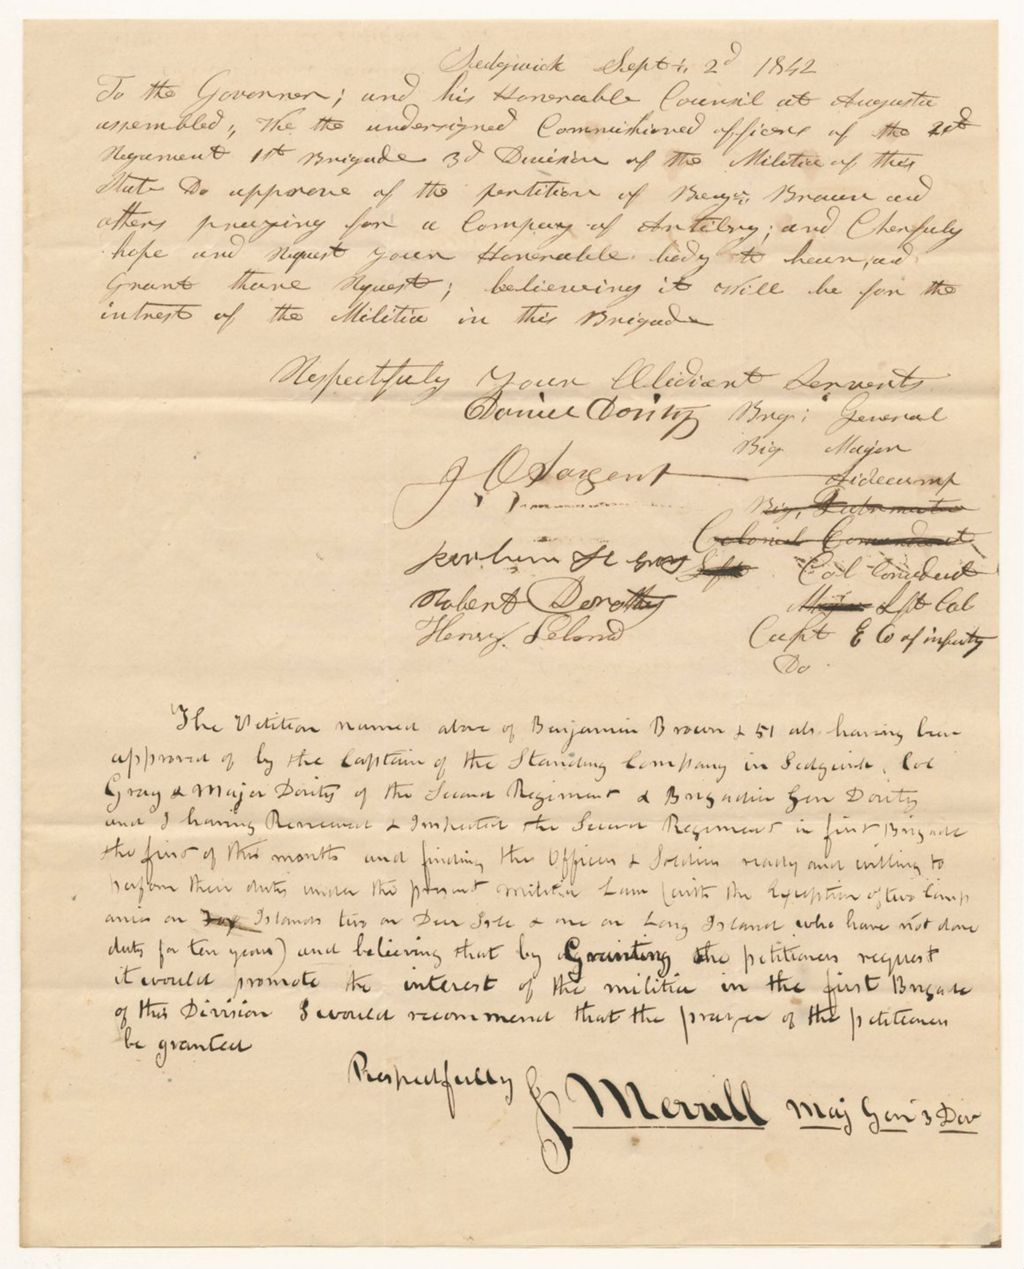 Sedgwick Sept. 2d 1842
To the Governer; and his Honerable Council at Augusta
assembled, We the undersigned Commishioned officers of the 2d
Regement 1st Brigade 3d Division of the Militia of this
State Do approve of the pertition of Benj. Brown and
others praying for a Company of Artilery; and Cherfuly
hope and request your Honerable body to hear, and
Grant thare request; believeing it will be for the
intrest of the Militia in this Brigade
Respectifuly your Obidiant Servents
Daniel Dority Brig: General
Brig Major
J O Sargent Aidecamp
Brig,
Colonel Comandant
H Gray Col Comdent
Robert Dority Lft Col
Henry Lelond Capt E Co of infunty
Do
The Petition named above of Benjamin Brown & 51 als. having been
approved of by the Captain of the Standing Company in Sedgwick, Col
Gray & Major Dority of the Second Regiment & Brigadier Gen Dority
and I having Reviewed & Inspected the Second Regiment in first Brigade
the first of this month and finding the Officers & Soldiers ready and willing to
perform their duties under the present militia Law (with the Exception of two Comp
anies on Islands two on Deer Isle & one on Long Island who have not done
duty for ten years) and believing that by Granting the petitioners request
it would promote the interest of the militia in the first Brigade
of this Division I would recommend that the prayer of the petitioners
be granted
Respectfully J Merrill Maj Gen 3 Div